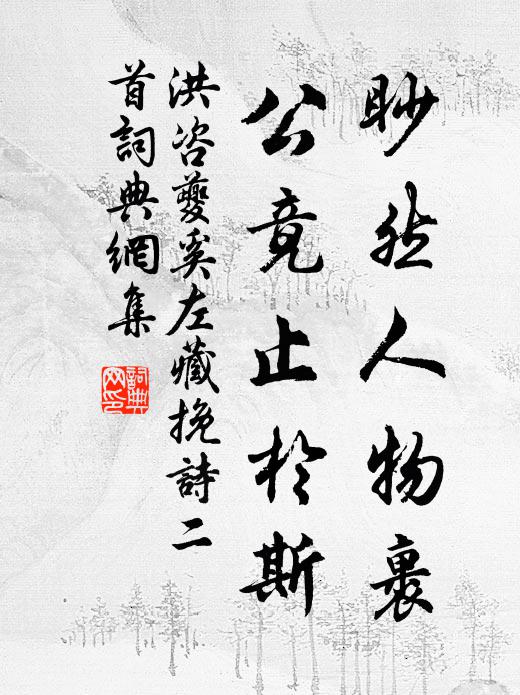 眇然人物裏
公竟止於斯
洪咨夔奚左藏挽詩二
首詞典網集
詞典網印